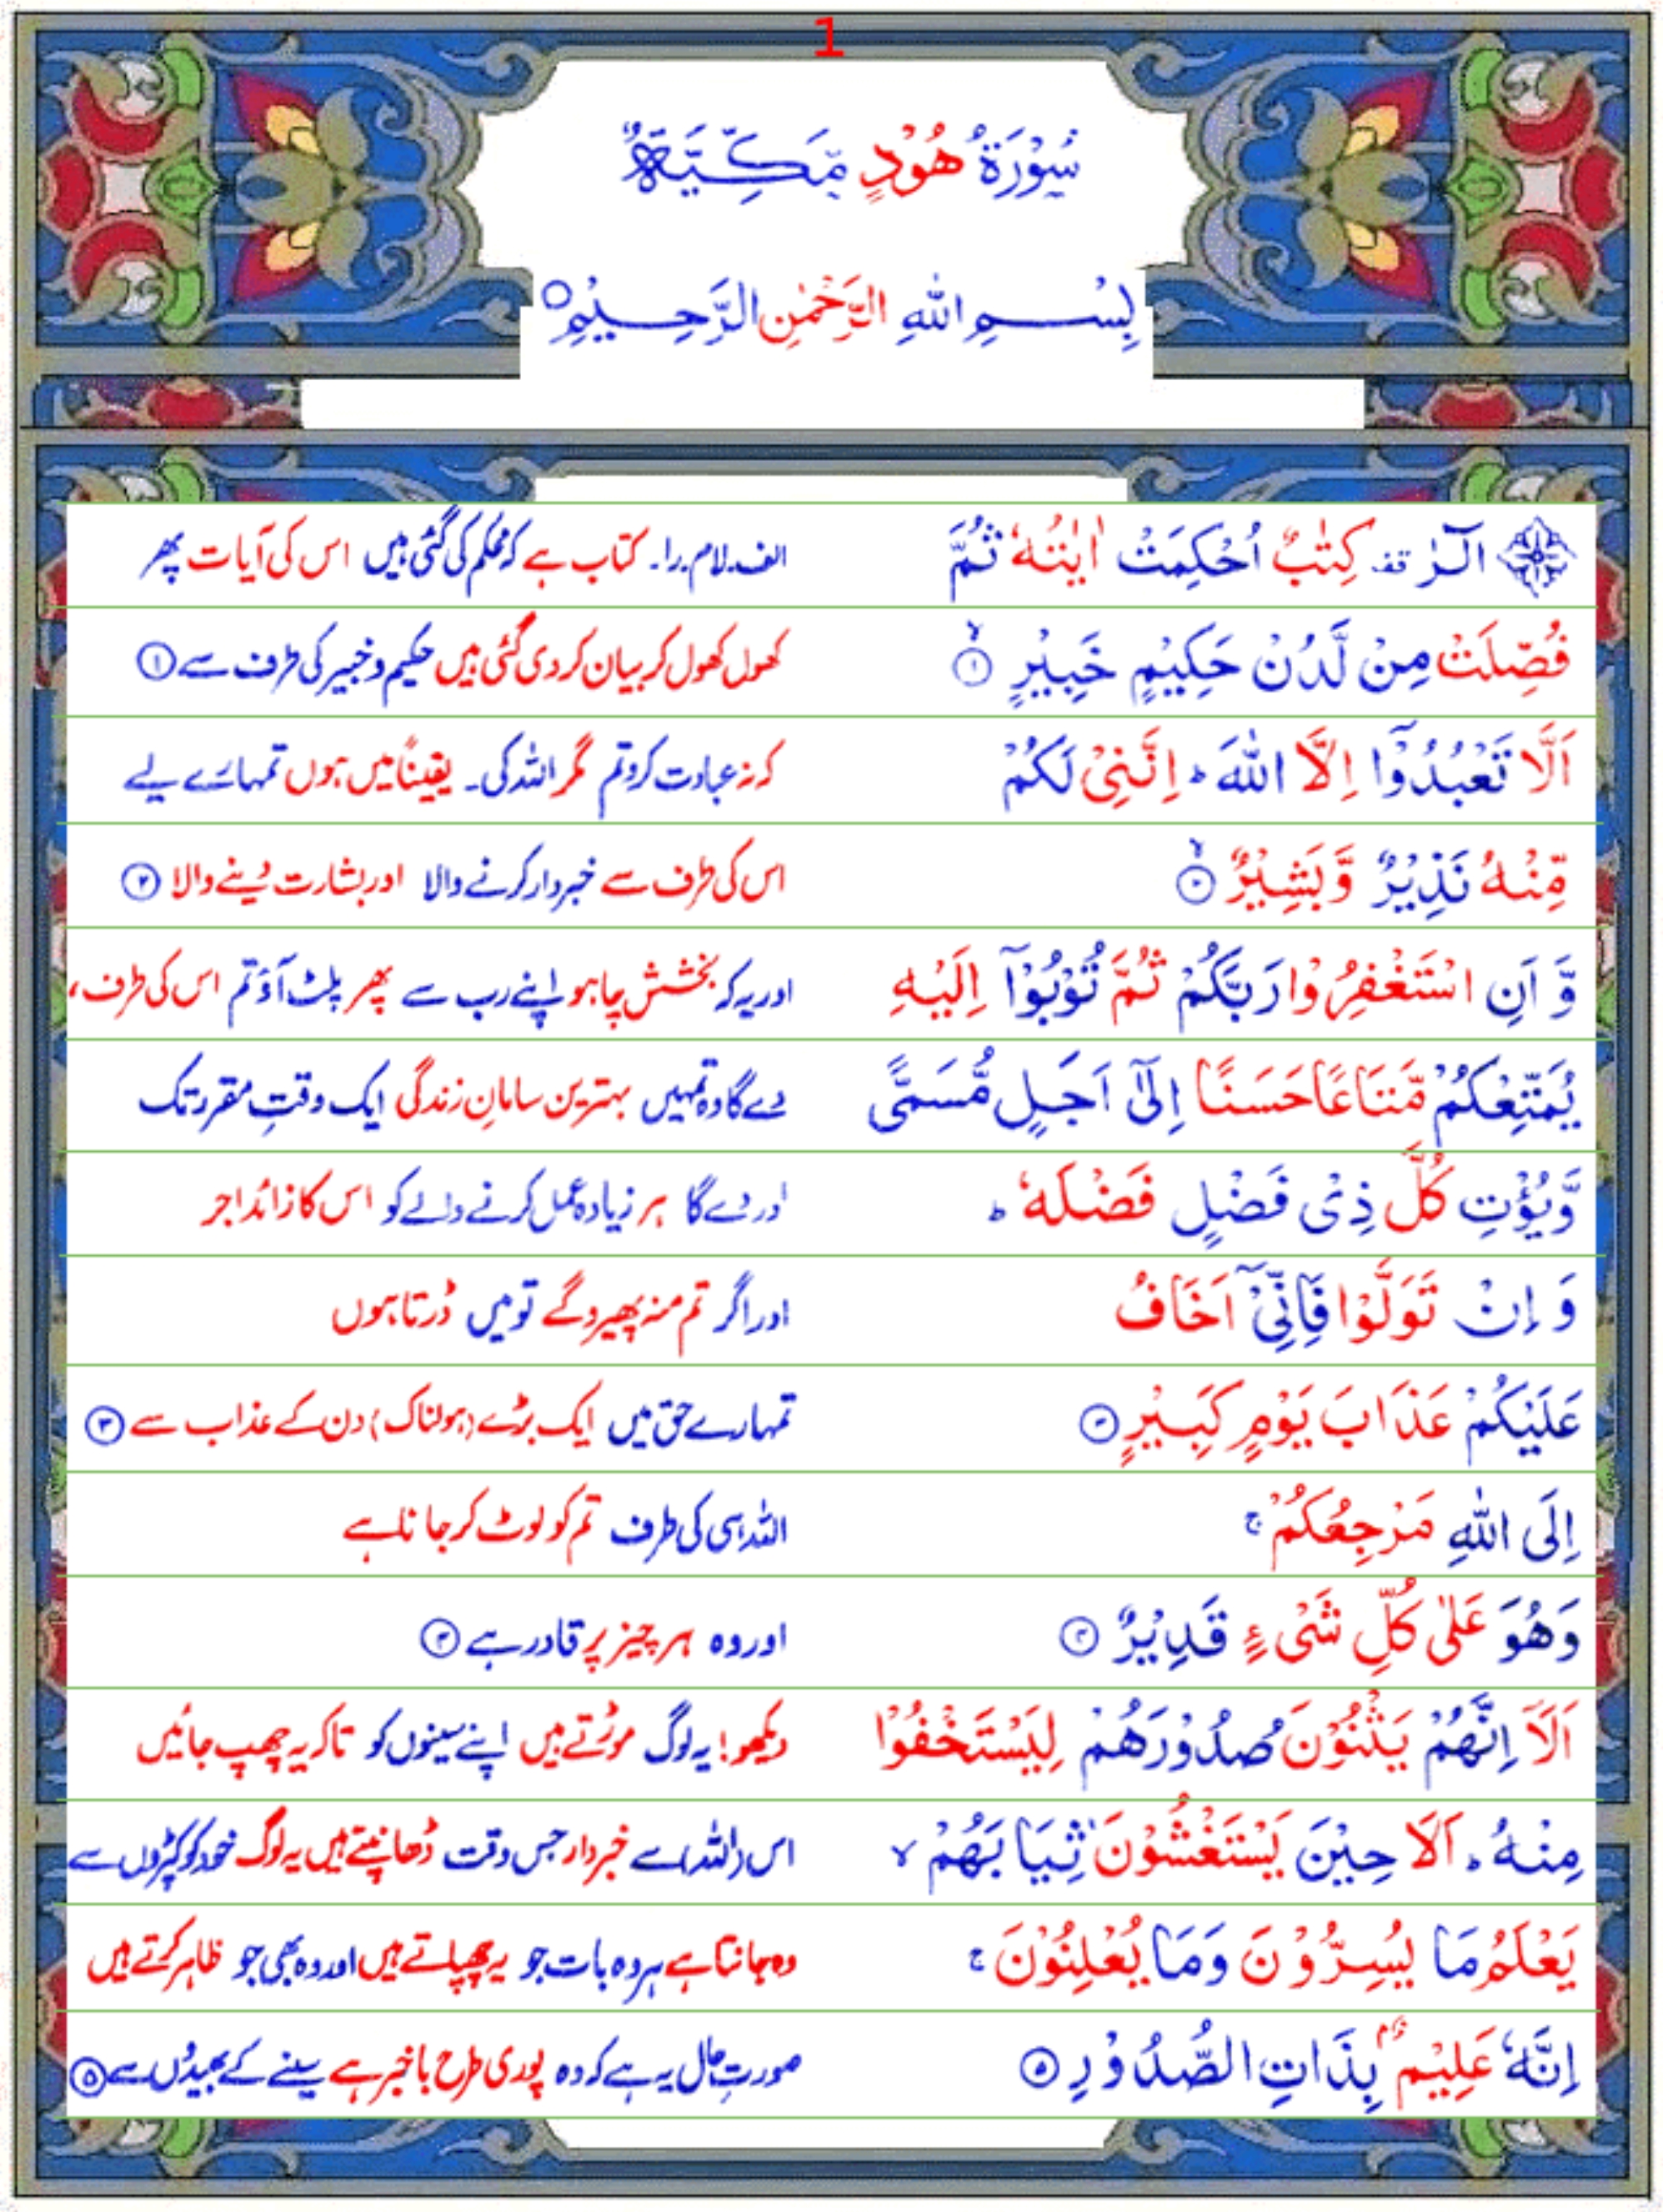 1
سُوْرَةُ هُوْدٍ مَّكِّيَّةٌ
بِسْمِ اللّٰهِ الرَّحْمٰنِ الرَّحِيْمِ ○
الٓرٰ قف كِتٰبٌ اُحْكِمَتْ اٰيٰتُهٗ ثُمَّ الف۔لام۔را۔ کتاب ہے کہ محکم کی گئی ہیں اس کی آیات پھر
فُصِّلَتْ مِنْ لَّدُنْ حَكِيْمٍ خَبِيْرٍ ۙ﴿۱﴾ کھول کھول کر بیان کر دی گئی ہیں حکیم و خبیر کی طرف سے ①
اَلَّا تَعْبُدُوْۤا اِلَّا اللّٰهَ ؕ اِنَّنِيْ لَكُمْ کہ نہ عبادت کرو تم مگر اللہ کی۔ یقیناً میں ہوں تمہارے لیے
مِّنْهُ نَذِيْرٌ وَّبَشِيْرٌ ۙ﴿۲﴾ اس کی طرف سے خبردار کرنے والا اور بشارت دینے والا ②
وَّ اَنِ اسْتَغْفِرُوْا رَبَّكُمْ ثُمَّ تُوْبُوْۤا اِلَيْهِ اور یہ کہ بخشش چاہو اپنے رب سے پھر پلٹ آؤ تم اس کی طرف،
يُمَتِّعْكُمْ مَّتَاعًا حَسَنًا اِلٰۤى اَجَلٍ مُّسَمًّى دے گا وہ تمہیں بہترین سامانِ زندگی ایک وقتِ مقرر تک
وَّيُؤْتِ كُلَّ ذِيْ فَضْلٍ فَضْلَهٗ ؕ اور دے گا ہر زیادہ عمل کرنے والے کو اس کا زائد اجر
وَ اِنْ تَوَلَّوْا فَاِنِّيْۤ اَخَافُ اور اگر تم منہ پھیرو گے تو میں ڈرتا ہوں
عَلَيْكُمْ عَذَابَ يَوْمٍ كَبِيْرٍ ﴿۳﴾ تمہارے حق میں ایک بڑے (ہولناک) دن کے عذاب سے ③
اِلَى اللّٰهِ مَرْجِعُكُمْ ۚ اللہ ہی کی طرف تم کو لوٹ کر جانا ہے
وَهُوَ عَلٰى كُلِّ شَيْءٍ قَدِيْرٌ ﴿۴﴾ اور وہ ہر چیز پر قادر ہے ④
اَلَاۤ اِنَّهُمْ يَثْنُوْنَ صُدُوْرَهُمْ لِيَسْتَخْفُوْا دیکھو! یہ لوگ موڑتے ہیں اپنے سینوں کو تاکہ یہ چھپ جائیں
مِنْهُ ؕ اَلَا حِيْنَ يَسْتَغْشُوْنَ ثِيَابَهُمْ ۙ اس (اللہ) سے خبردار جس وقت ڈھانپتے ہیں یہ لوگ خود کو کپڑوں سے
يَعْلَمُ مَا يُسِرُّوْنَ وَمَا يُعْلِنُوْنَ ۚ وہ جانتا ہے ہر وہ بات جو یہ چھپاتے ہیں اور وہ بھی جو ظاہر کرتے ہیں
اِنَّهٗ عَلِيْمٌۢ بِذَاتِ الصُّدُوْرِ ﴿۵﴾ صورتِ حال یہ ہے کہ وہ پوری طرح باخبر ہے سینے کے بھیدوں سے ⑤